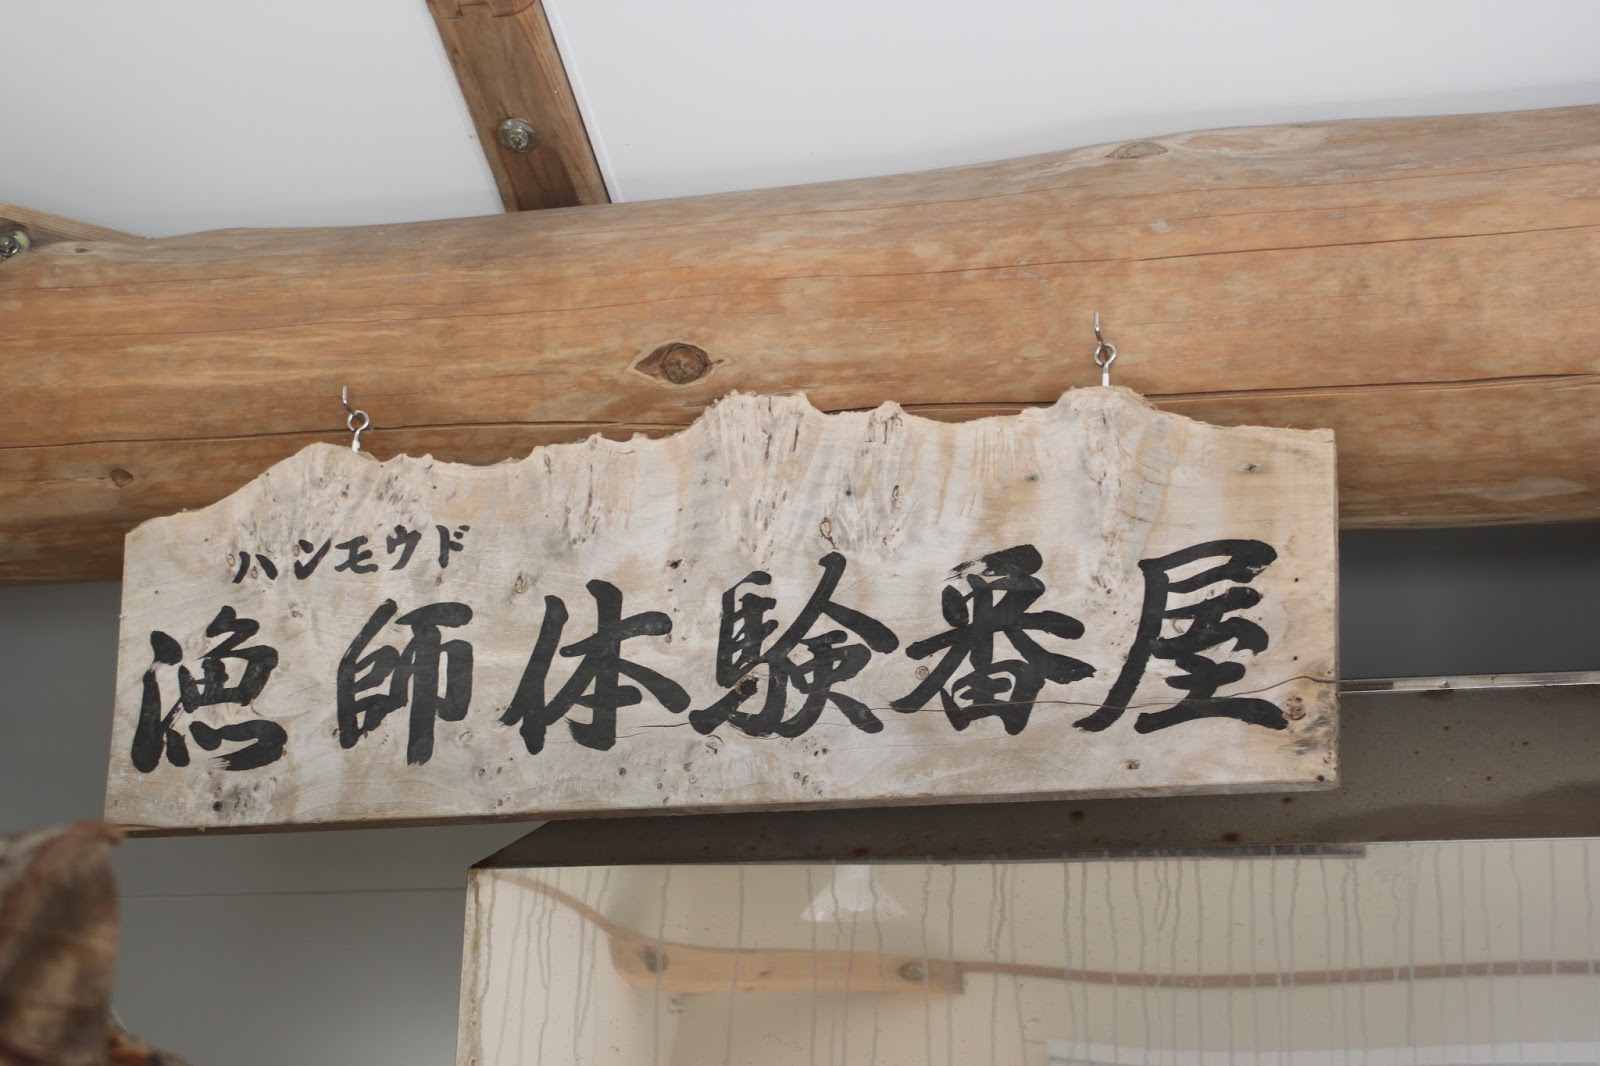 ハンモウド
漁師体験番屋